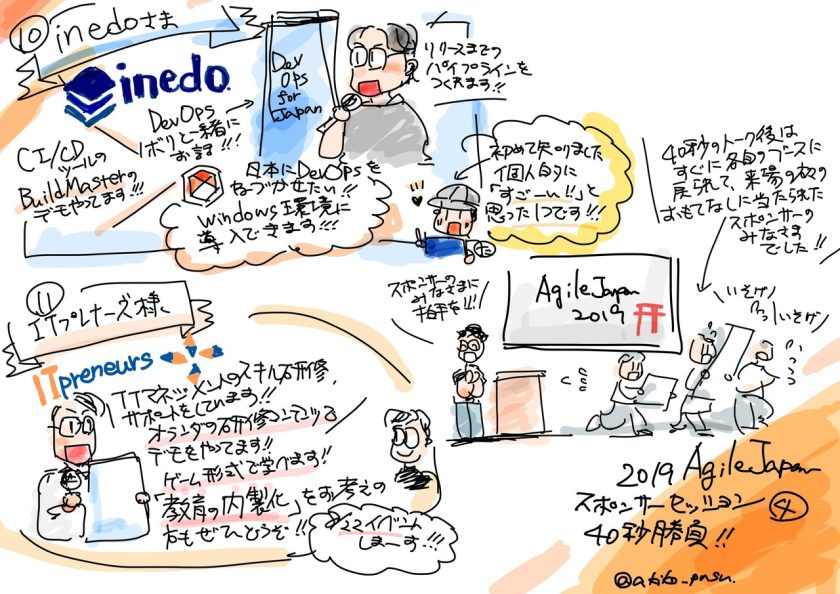 ⑩ inedoさま
inedo
DevOps
for
Japan
リリースまでの
パイプラインを
つくれます!!
DevOps
ボリと一緒に
おります!!!
CI/CD
ツールの
BuildMasterの
デモやってます!!!
日本にDevOpsを
ねづかせたい!!
Windows環境に
導入できます!!!
初めて知りました
個人的に
「すごーい!!」と
思った1つです!!!
40秒のトーク後は
すぐに各自のブースに
戻られて、来場の方の
おもてなしに当たられた
スポンサーの
みなさま
でした!!
⑪
ITプレナーズ様、
ITpreneurs
ITマネジメント人のスキル研修、
サポートをしています!!
オランダの研修コンテンツの
デモをやってます!!
ゲーム形式で学べます!
「教育の内製化」をお考えの
方もぜひどうぞ!!
しまーす!!!
スポンサーの
みなさまに
拍手を!!!
Agile Japan
2019
いそげ
いそげ
2019 Agile Japan
スポンサーセッション④
40秒勝負!!